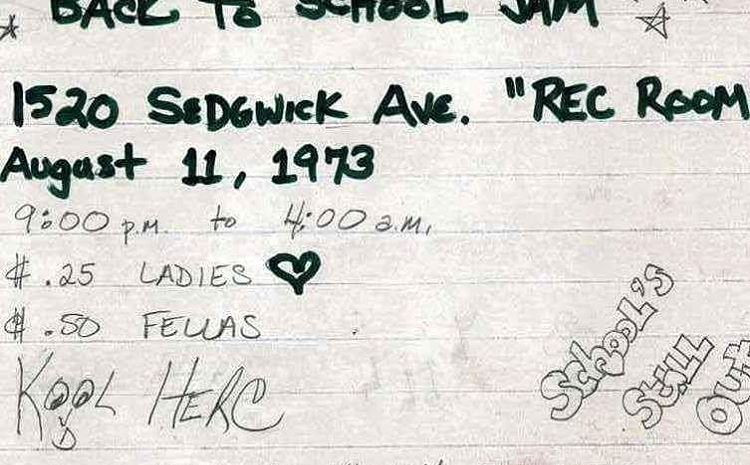 BACK TO SCHOOL JAM
1520 SEDGWICK AVE. "REC ROOM
August 11, 1973
9:00 p.m. to 4:00 a.m.
$ .25 LADIES
$ .50 FELLAS
KOOL HERC
SCHOOL'S
STILL
OUT